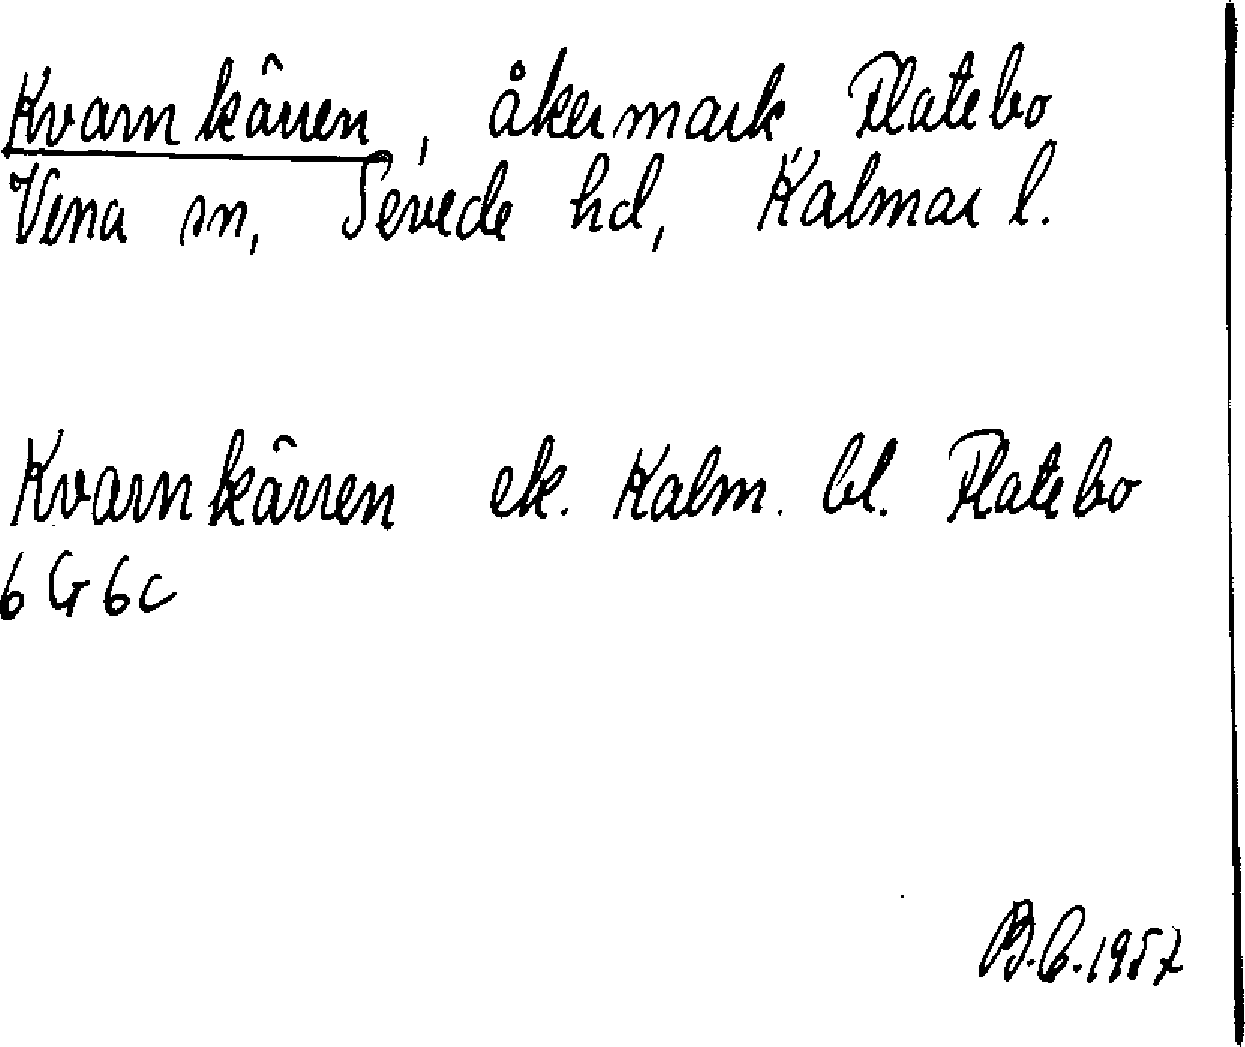 Kvarnkärren, åkermark, Flatebo
Vena sn, Sevede hd, Kalmar l.
Kvarnkärren ek. Kalm. bl. Flatebo
6G6c
B.C.1957